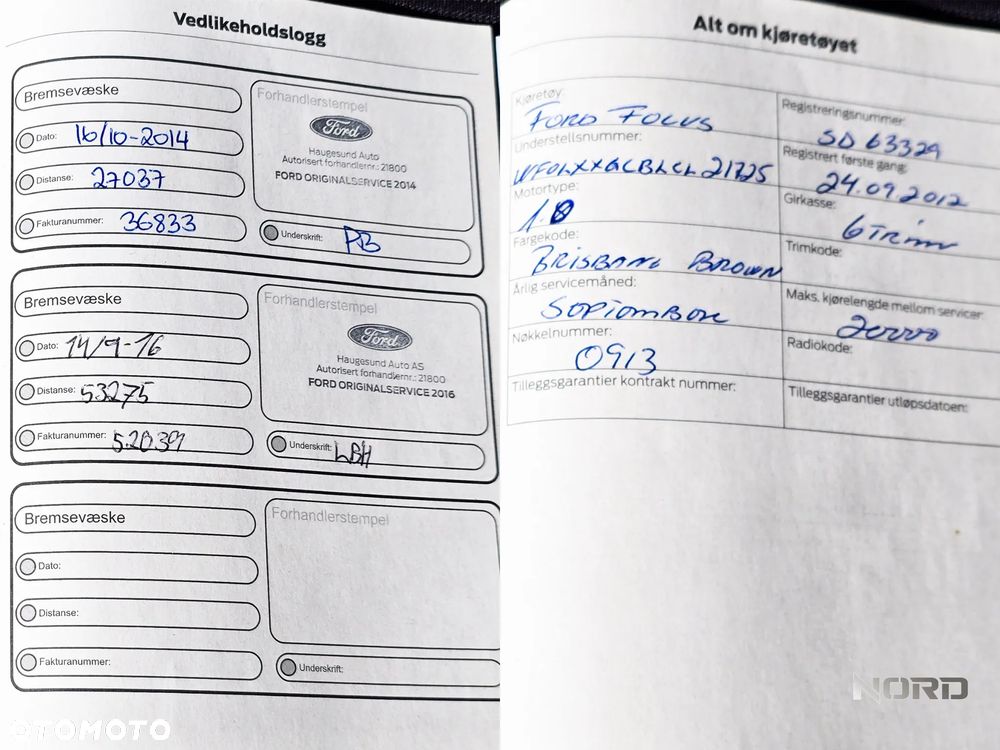 Vedlikeholdslogg
Bremsevæske
Dato: 16/10-2014
Distanse: 27037
Fakturanummer: 36833
Forhandlerstempel
Ford
Haugesund Auto
Autorisert forhandlernr.: 21800
FORD ORIGINALSERVICE 2014
Underskrift: PB
Bremsevæske
Dato: 14/9-16
Distanse: 53275
Fakturanummer: 52039
Forhandlerstempel
Ford
Haugesund Auto AS
Autorisert forhandlernr.: 21800
FORD ORIGINALSERVICE 2016
Underskrift: LBH
Bremsevæske
Dato:
Distanse:
Fakturanummer:
Forhandlerstempel
Underskrift:
OTOMOTO
Alt om kjøretøyet
Kjøretøy:
FORD FOCUS
Registreringsnummer:
SD 63329
Understellsnummer:
Registrert første gang:
24.09.2012
Motortype:
1.0
Girkasse:
6 Trinn
Fargekode:
BRISBANE BROWN
Trimkode:
Årlig servicemåned:
Maks. kjørelengde mellom servicer:
Nøkkelnummer:
0913
Radiokode:
Tilleggsgarantier kontrakt nummer:
Tilleggsgarantier utløpsdatoen:
NORD